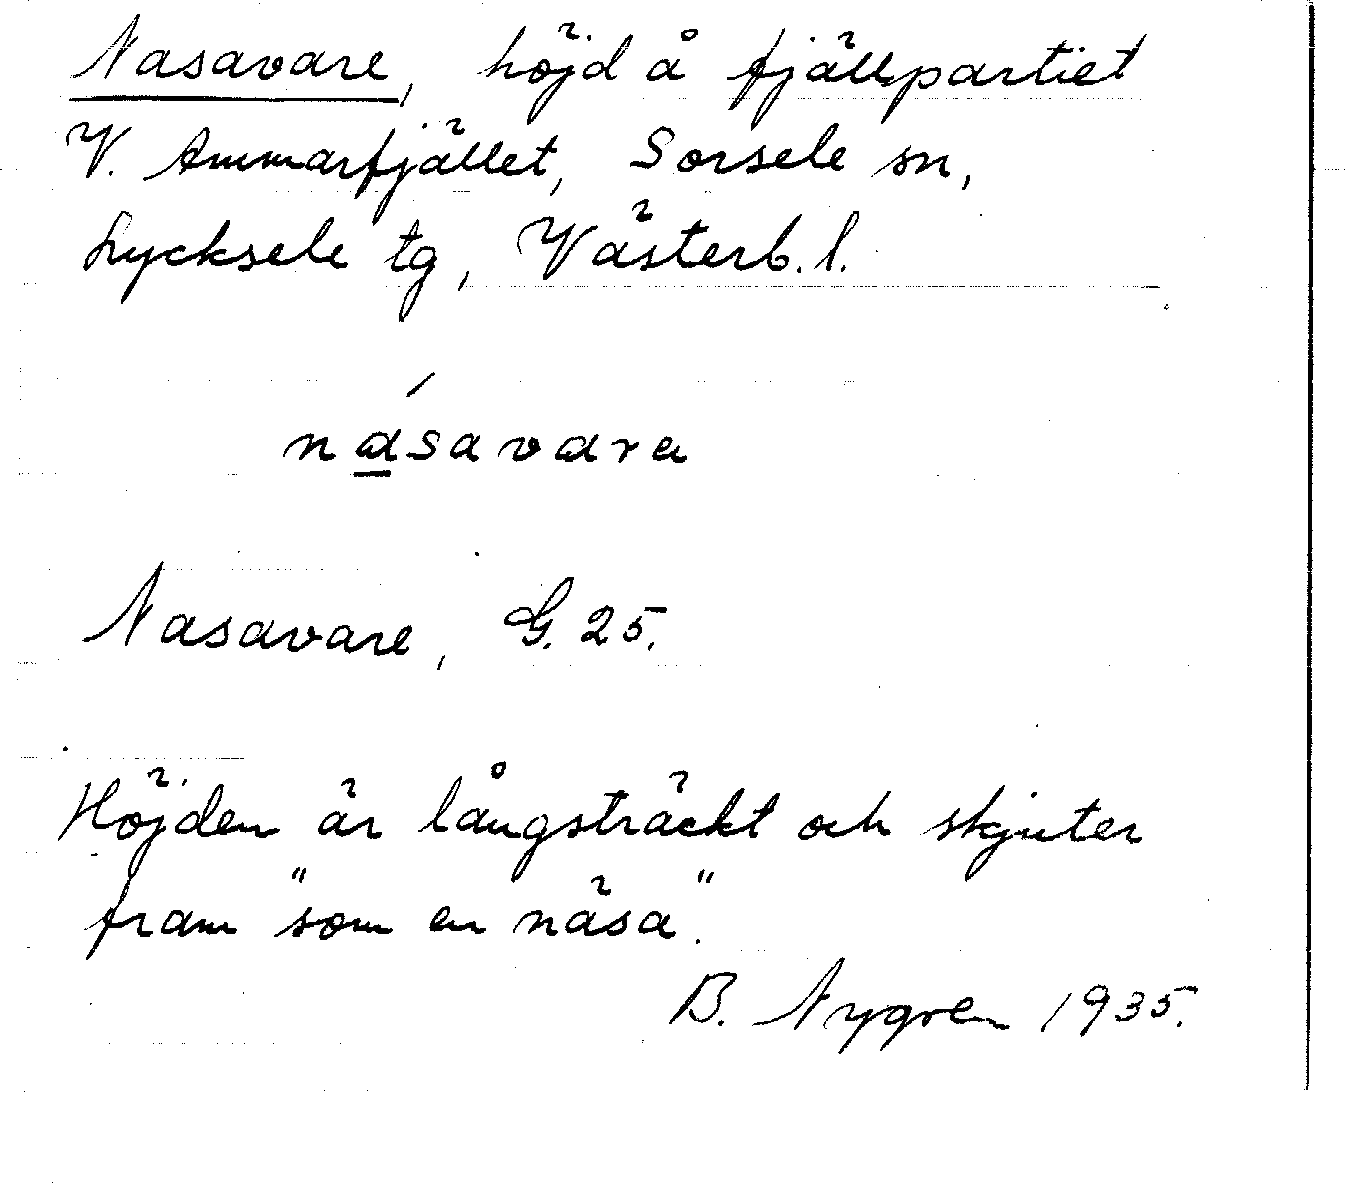 Nasavare, höjd å fjällpartiet
V. Ammarfjället, Sorsele sn,
Lycksele tg, Västerb. l.
násavara
Nasavare, G. 25.
Höjden är långsträckt och skjuter
fram "som en näsa".
B. Nygren 1935.